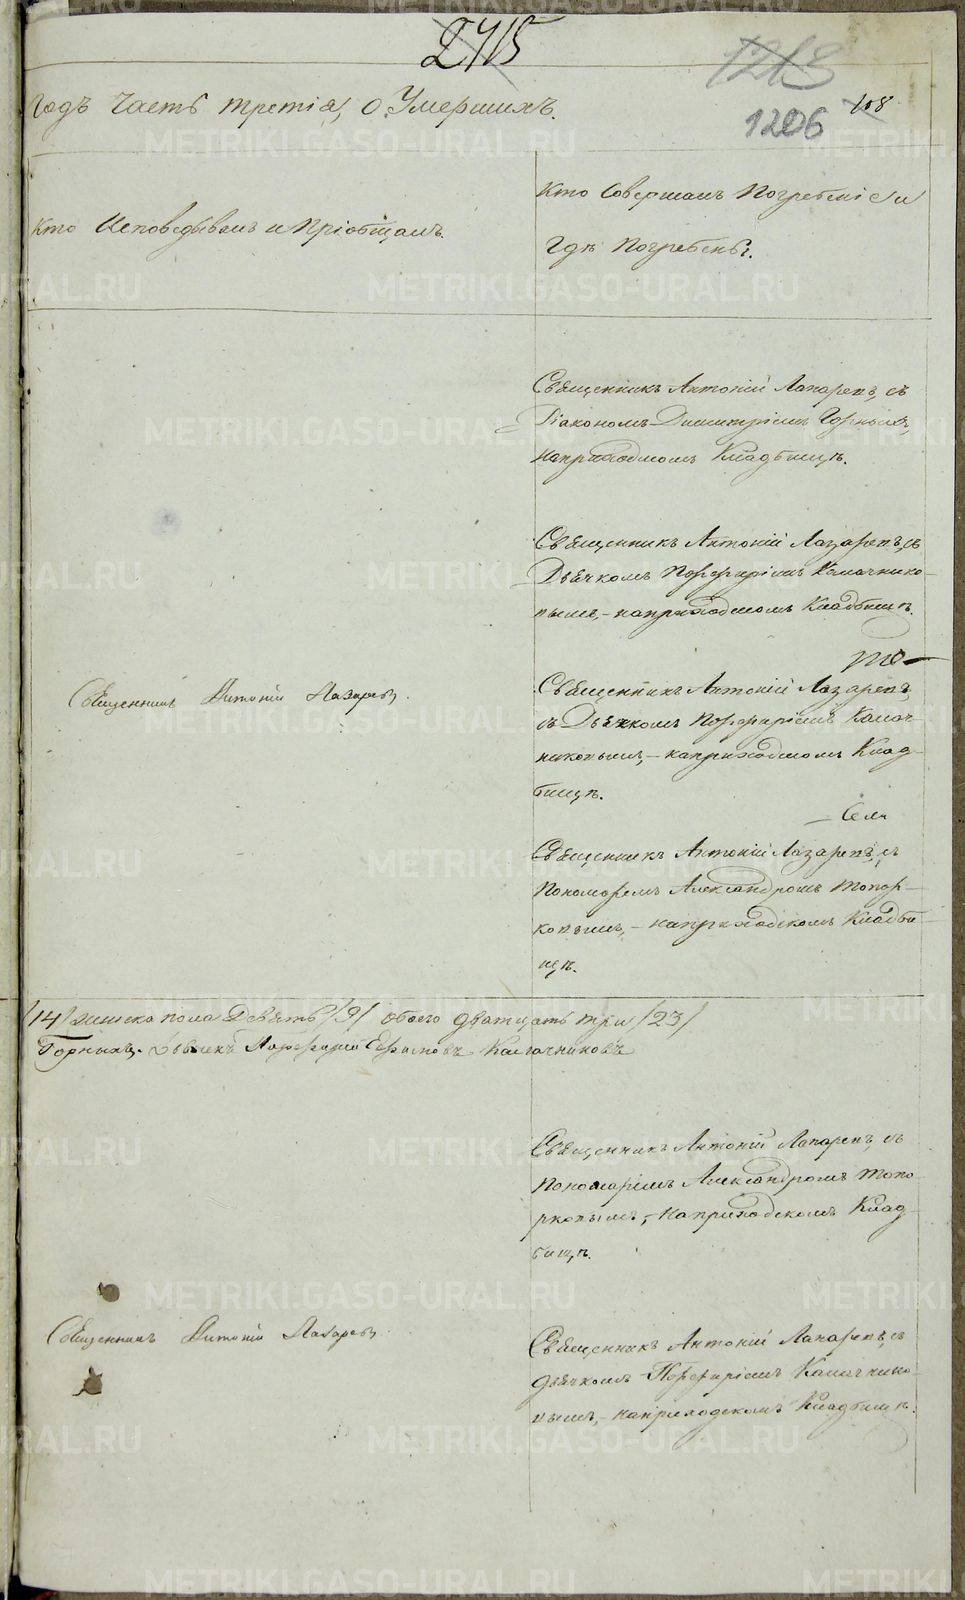 2415
1213
1206
108
Годъ Часть третія, о Умершихъ.
Кто Исповѣдывалъ и Пріобщалъ.
Кто Совершалъ Погребеніе и
Гдѣ Погребены.
Священникъ Антоній Лазаревъ, съ
Діакономъ Димитріемъ Горныхъ,
на приходскомъ Кладбищѣ.
Священникъ Антоній Лазаревъ, съ
Дьячкомъ Порфиріемъ Калачнико-
вымъ, на приходскомъ Кладбищѣ.
то-
Священникъ Антоній Лазаревъ,
съ Дьячкомъ Порфиріемъ Калач-
никовымъ, на приходскомъ Клад-
бищѣ.
Священникъ Антоній Лазаревъ.
Священникъ Антоній Лазаревъ, съ
Пономоремъ Александромъ Топор-
ковымъ, на приходскомъ Кладби-
щѣ.
/14/ женска пола Девять /9/ обоего дватцать три /23/
Горныхъ. Дьячекъ Порфирій Калачниковъ
Священникъ Антоній Лазаревъ, съ
Пономаріемъ Александромъ Топо-
рковымъ, на приходскомъ Клад-
бищѣ.
Священникъ Антоній Лазаревъ.
Священникъ Антоній Лазаревъ, съ
дьячкомъ Порфиріемъ Калачнико-
вымъ, на приходскомъ Кладбищѣ.
METRIKI.GASO-URAL.RU